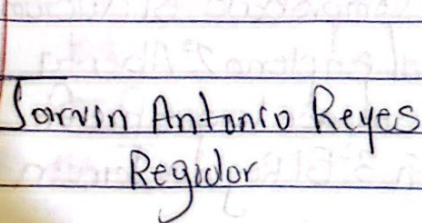 Jarvin Antonio Reyes
Regidor